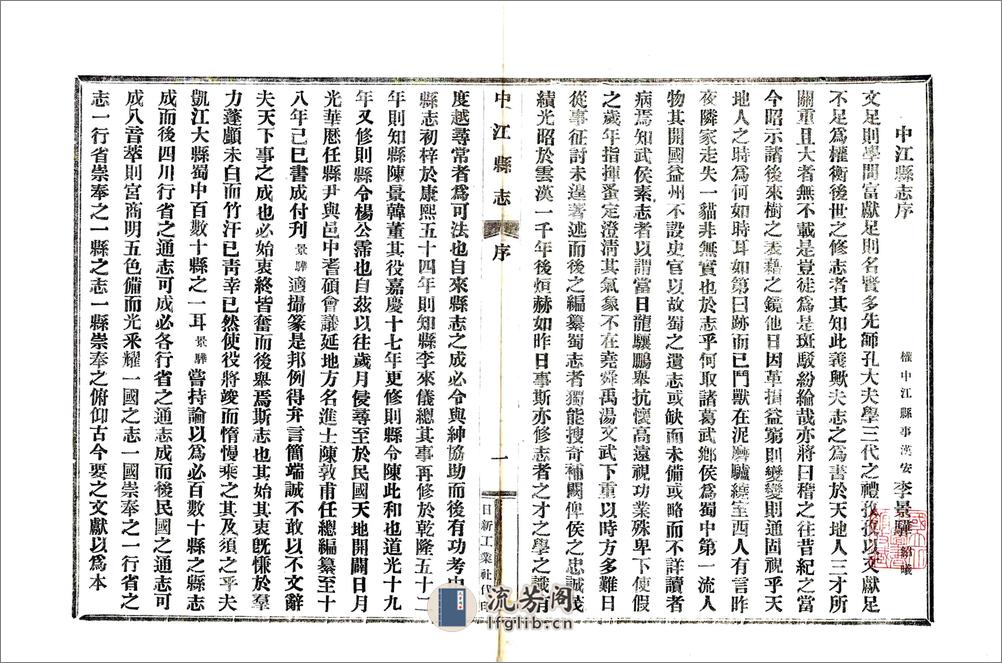 中江縣志序
權中江縣事漢安李景驊紹儀
文足則學問富獻足則名賢多先師孔大夫學三代之禮孜孜以文獻足
不足爲權衡後世之修志者其知此義歟夫志之爲書於天地人三才所
關重且大者無不載是豈徒爲是斑駁紛綸哉亦將曰稽之往昔紀之當
今昭示諸後來樹之表藉之鏡他日因革損益窮則變變則通固視乎天
地人之時爲何如時耳如第曰跡而已鬥獸在泥磨驢繞室西人有言昨
夜隣家走失一貓非無實也於志乎何取諸葛武鄉侯爲蜀中第一流人
物其開國益州不設史官以故蜀之遺志或缺而未備或略而不詳讀者
病焉知武侯素志者以謂當日龍驤鵬舉抗懷高遠視功業殊卑下使假
之歲年指揮蚤定澄清其氣象不在堯舜禹湯文武下重以時方多難日
從事征討未遑著述而後之編纂蜀志者獨能搜奇補闕俾侯之忠誠茂
績光昭於雲漢一千年後烜赫如昨日事斯亦修志者之才之學之識有
中江縣志
序
一
日新工業社代印
度越尋常者爲可法也自來縣志之成必令與紳協助而後有功考中
縣志初梓於康熙五十四年則知縣李來儀總其事再修於乾隆五十二
年則知縣陳景韓董其役嘉慶十七年更修則縣令陳此和也道光十九
年又修則縣令楊公霈也自茲以往歲月侵尋至於民國天地開闢日月
光華歷任縣尹與邑中耆碩會議延地方名進士陳敦甫任總編纂至十
八年己巳書成付刋景驊適攝篆是邦例得弁言簡端誠不敢以不文辭
夫天下事之成也必始衷終皆奮而後舉焉斯志也其始其衷旣慊於羣
力蓬顱未白而竹汗已靑幸已然使役將竣而惰慢乘之其及須之乎夫
凱江大縣蜀中百數十縣之一耳景驊嘗持論以爲必百數十縣之縣志
成而後四川行省之通志可成必各行省之通志成而後民國之通志可
成八音萃則宮商明五色備而光釆耀一國之志一國崇奉之一行省之
志一行省崇奉之一縣之志一縣崇奉之俯仰古今要之文獻以爲本
流芳阁
lfglib.cn